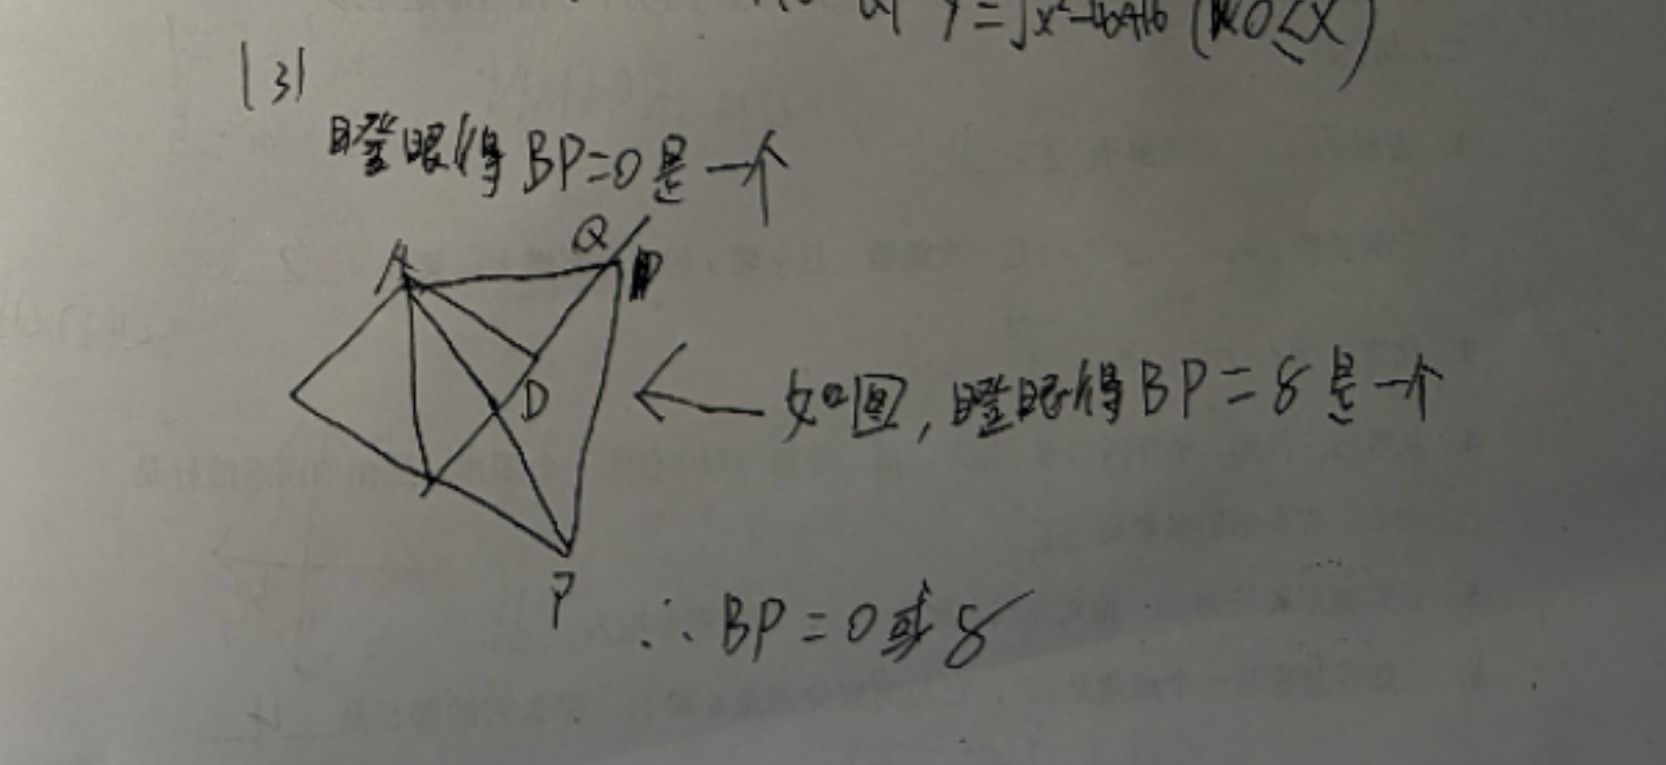 y=√x²-4x+16 (0≤x)
(3)
瞪眼得BP=0是一个
A
Q
D
如图,瞪眼得BP=8是一个
P
∴BP=0或8